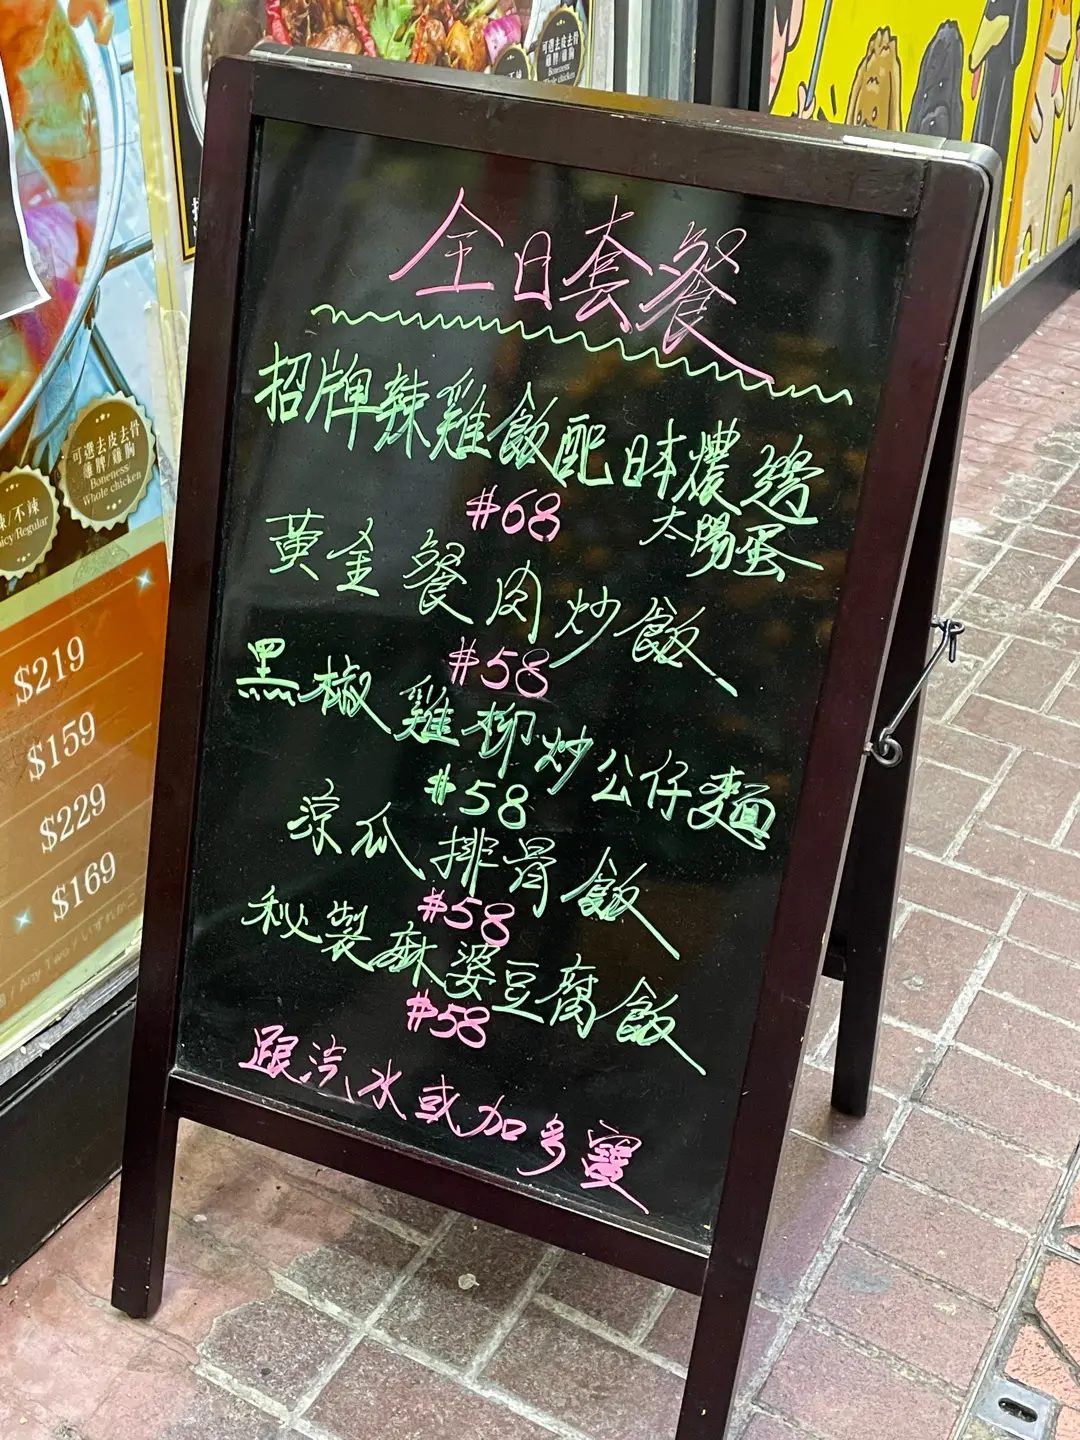 全日套餐
招牌辣雞飯配日本濃鷄
太陽蛋
#68
黃金餐肉炒飯
#58
黑椒雞柳炒公仔麵
#58
涼瓜排骨飯
#58
秘製麻婆豆腐飯
#58
跟汽水或加多寶
可選去皮去骨
雞脾/雞胸
Boneness/
Whole chicken
可選去皮去骨
雞脾/雞胸
Boneness/
Whole chicken
辣/不辣
Spicy/Regular
$219
$159
$229
$169